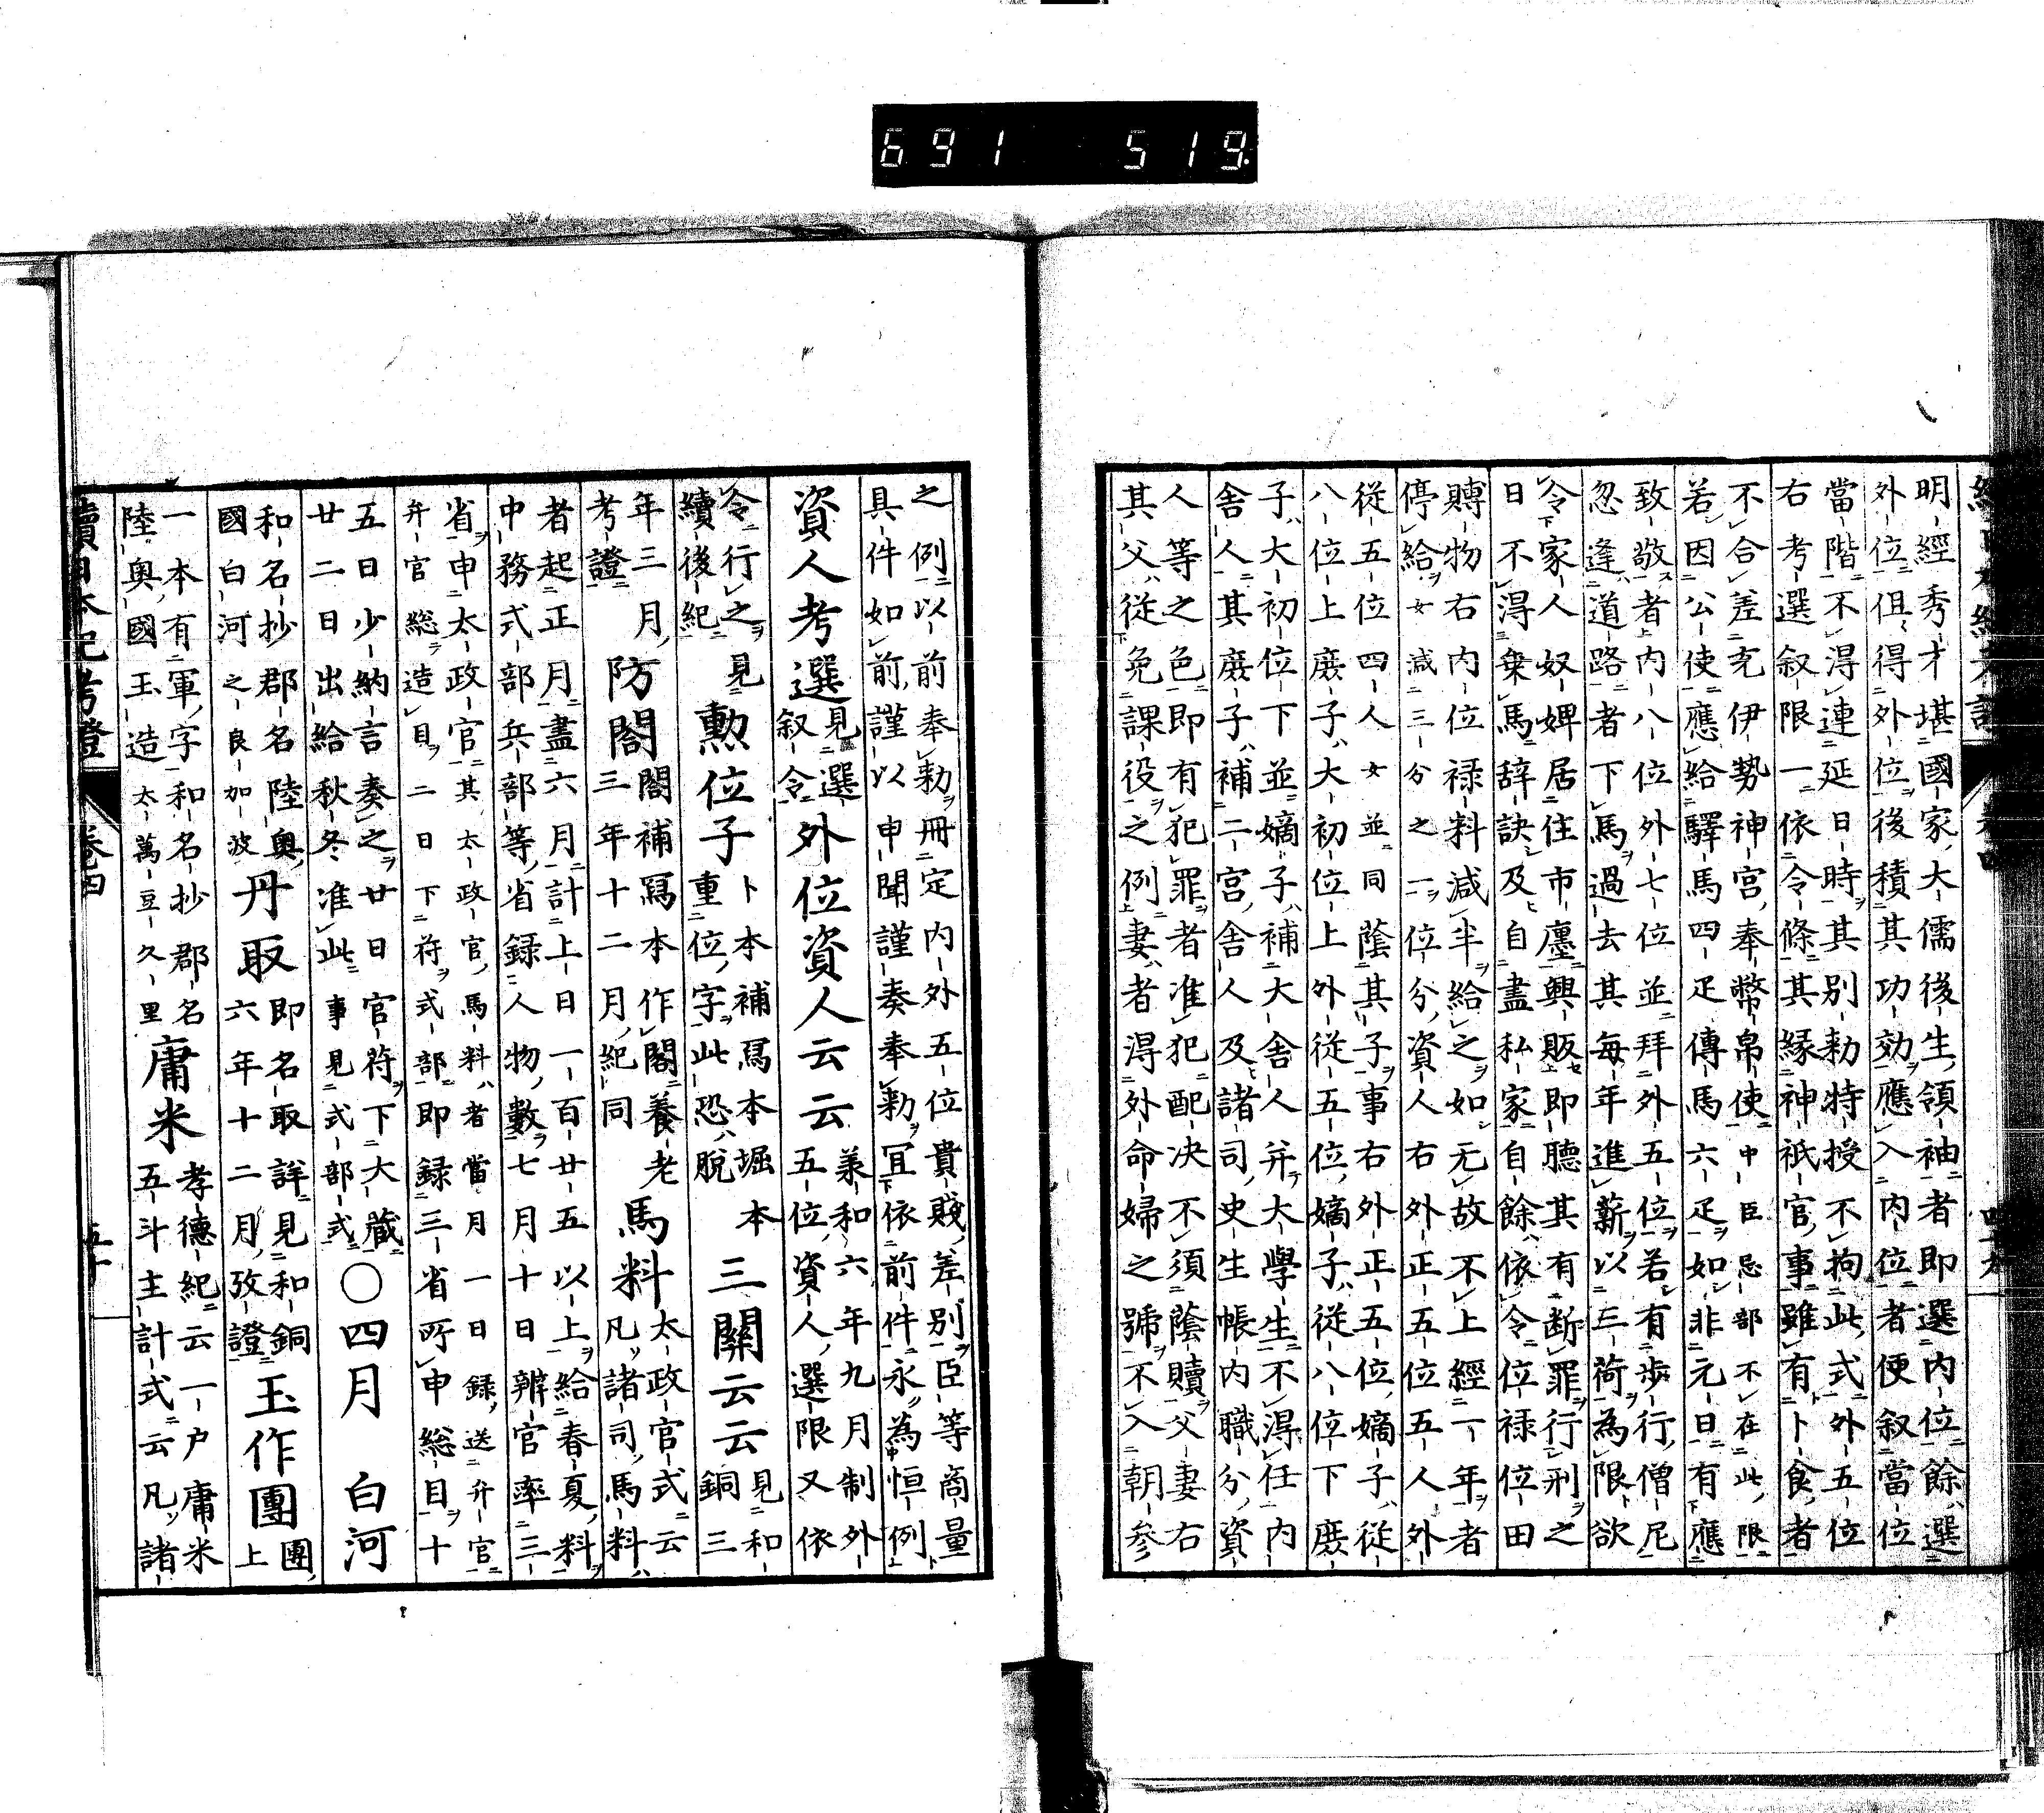 691 519
明經秀才堪國家大儒後生領袖者即選内位餘選
外位但得外位後積其功効應入内位者便叙當位
當階不得連延日時其別勅特授不拘此式外五位
右考選叙限一依令條其縁神祇官事雖有卜食者
不合差充伊勢神宮奉幣帛使中臣忌部不在此限
若因公使應給驛馬四疋傳馬六疋如非元日有應
致敬者内八位外七位並拜外五位若有歩行僧尼
忽逢道路者下馬過去其毎年進薪以三荷為限欲
令家人奴婢居住市廛興販即聽其有断罪行刑之
日不得乗馬辞訣及自盡私家自餘依令位禄位田
賻物右内位禄料減半給之如无故不上經一年者
停給女減三分之一位分資人右外正五位五人外
從五位四人女並同蔭其子事右外正五位嫡子從
八位上庶子大初位上外從五位嫡子從八位下庶
子大初位下並嫡子補大舎人并大學生不得任内
舎人其庶子補二宮舎人及諸司史生帳内職分資
人等之色即有犯罪者准犯配决不須蔭贖父妻右
其父從免課役之例妻者得外命婦之號不入朝参
之例以前奉勅冊定内外五位貴賤差別臣等商量
具件如前謹以申聞謹奏奉勅冝依前件永為恒例
資人考選見選叙令外位資人云云養和六年九月制外五位資人選限又依
令行之見續後紀勲位子卜本補冩本堀本重位字此恐脱三關云云見和銅三
年三月考證防閤閤補冩本作閣養老三年十二月紀同馬料太政官式云凡諸司馬料
者起正月盡六月計上日一百廿五以上給春夏料
中務式部兵部等省録人物數七月十日辨官率三
省申太政官其太政官馬料者當月一日録送弁官
弁官総造目二日下符式部即録三省所申総目十
五日少納言奏之廿日官符下大藏
廿二日出給秋冬准此事見式部式○四月白河
和名抄郡名陸奥國白河之良加波丹取即名取詳見和銅六年十二月攷證玉作團團上
一本有軍字和名抄郡名陸奥國玉造太萬豆久里庸米孝德紀云一户庸米五斗主計式云凡諸
續日本紀考證 卷四 五十